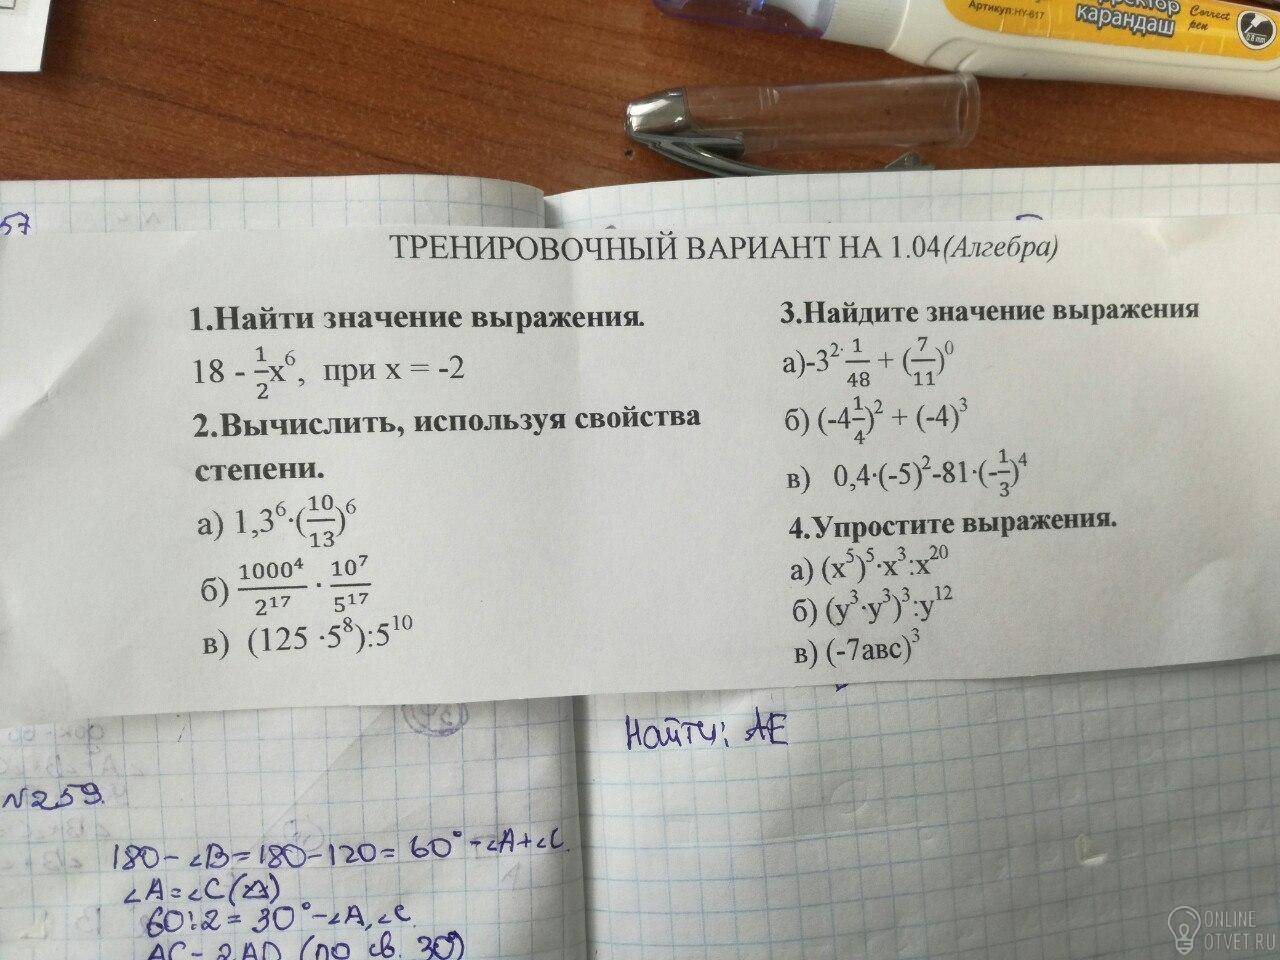 корректор
карандаш
Correct
pen
Артикул:HY-617
0.8 mm
57
ТРЕНИРОВОЧНЫЙ ВАРИАНТ НА 1.04(Алгебра)
1.Найти значение выражения.
18 - 1/2 x⁶, при x = -2
2.Вычислить, используя свойства
степени.
а) 1,3⁶·(10/13)⁶
б) 1000⁴/2¹⁷ · 10⁷/5¹⁷
в) (125 ·5⁸):5¹⁰
3.Найдите значение выражения
а)-3²· 1/48 + (7/11)⁰
б) (-4 1/4)² + (-4)³
в) 0,4·(-5)²-81·(-1/3)⁴
4.Упростите выражения.
а) (x⁵)⁵·x³:x²⁰
б) (y³·y³)³:y¹²
в) (-7авс)³
Найти: AE
N259.
180-∠B=180-120=60°-∠A+∠C.
∠A=∠C(△)
60:2=30°-∠A,∠C.
AC=2AD (по св. 30°)
ONLINE
OTVET.RU